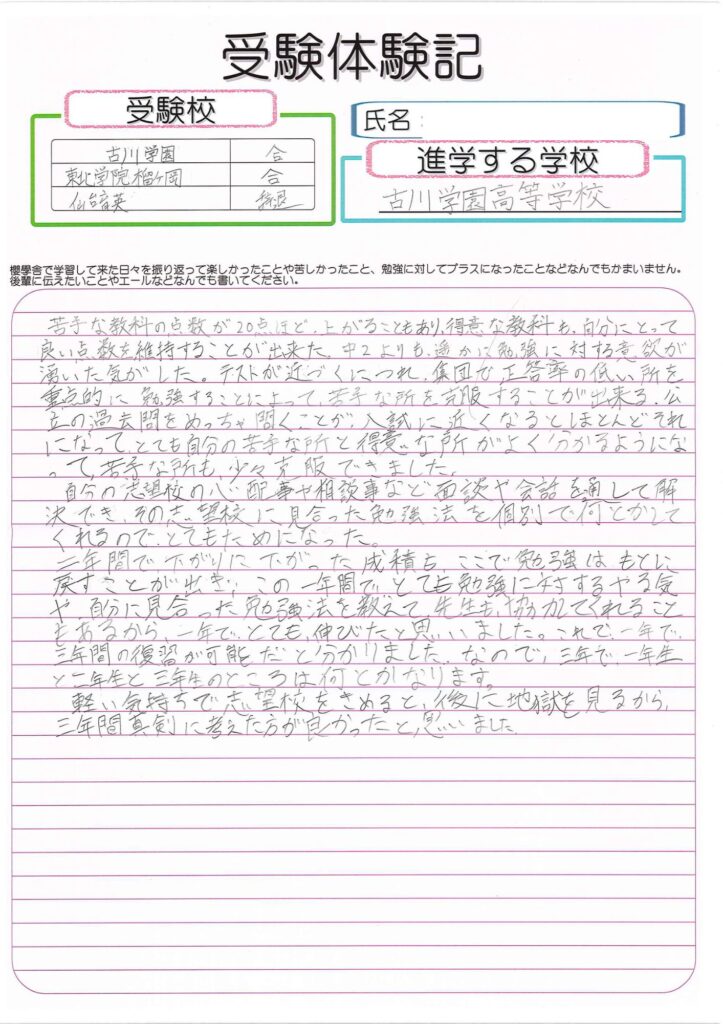 受験体験記
受験校
古川学園 合
東北学院榴ヶ岡 合
仙台育英
氏名:
進学する学校
古川学園高等学校
櫻學舎で学習して来た日々を振り返って楽しかったことや苦しかったこと、勉強に対してプラスになったことなどなんでもかまいません。
後輩に伝えたいことやエールなどなんでも書いてください。
苦手な教科の点数が20点ほど、上がることもあり、得意な教科も、自分にとって
良い点数を維持することが出来た。中2よりも、遥かに勉強に対する意欲が
湧いた気がした。テストが近づくにつれ、集団で正答率の低い所を
重点的に勉強することによって、苦手な所を克服することが出来る。公
立の過去問をめっちゃ聞くことが、入試に近くなるとほとんどそれ
になって、とても自分の苦手な所と得意な所がよく分かるようにな
って、苦手な所も、少々克服できました。
自分の志望校の心配事や相談事など面談や会話を通して解
決でき、その志望校に見合った勉強法を個別で何とかして
くれるので、とてもためになった。
二年間で下がりに下がった成績も、ここで勉強はもとに
戻すことが出き、この一年間で、とても勉強に対するやる気
や自分に見合った勉強法を教えて、先生も協力してくれること
もあるから、一年で、とても、伸びたと思いました。これで、一年で、
三年間の復習が可能だと分かりました。なので、三年で、一年生
と二年生と三年生のところは何とかなります。
軽い気持ちで志望校をきめると、後に地獄を見るから、
三年間真剣に考えた方が良かったと、思いました。